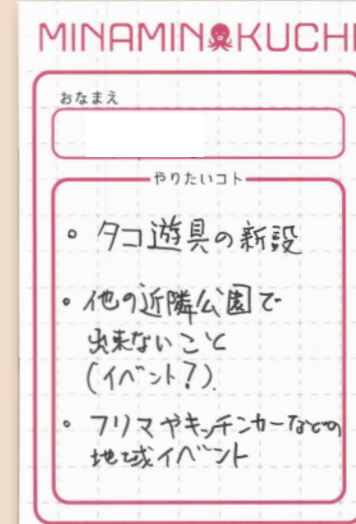 MINAMINOKUCHI
おなまえ
やりたいコト
• タコ遊具の新設
• 他の近隣公園で
出来ないこと
(イベント?).
• フリマやキッチンカーなどの
地域イベント